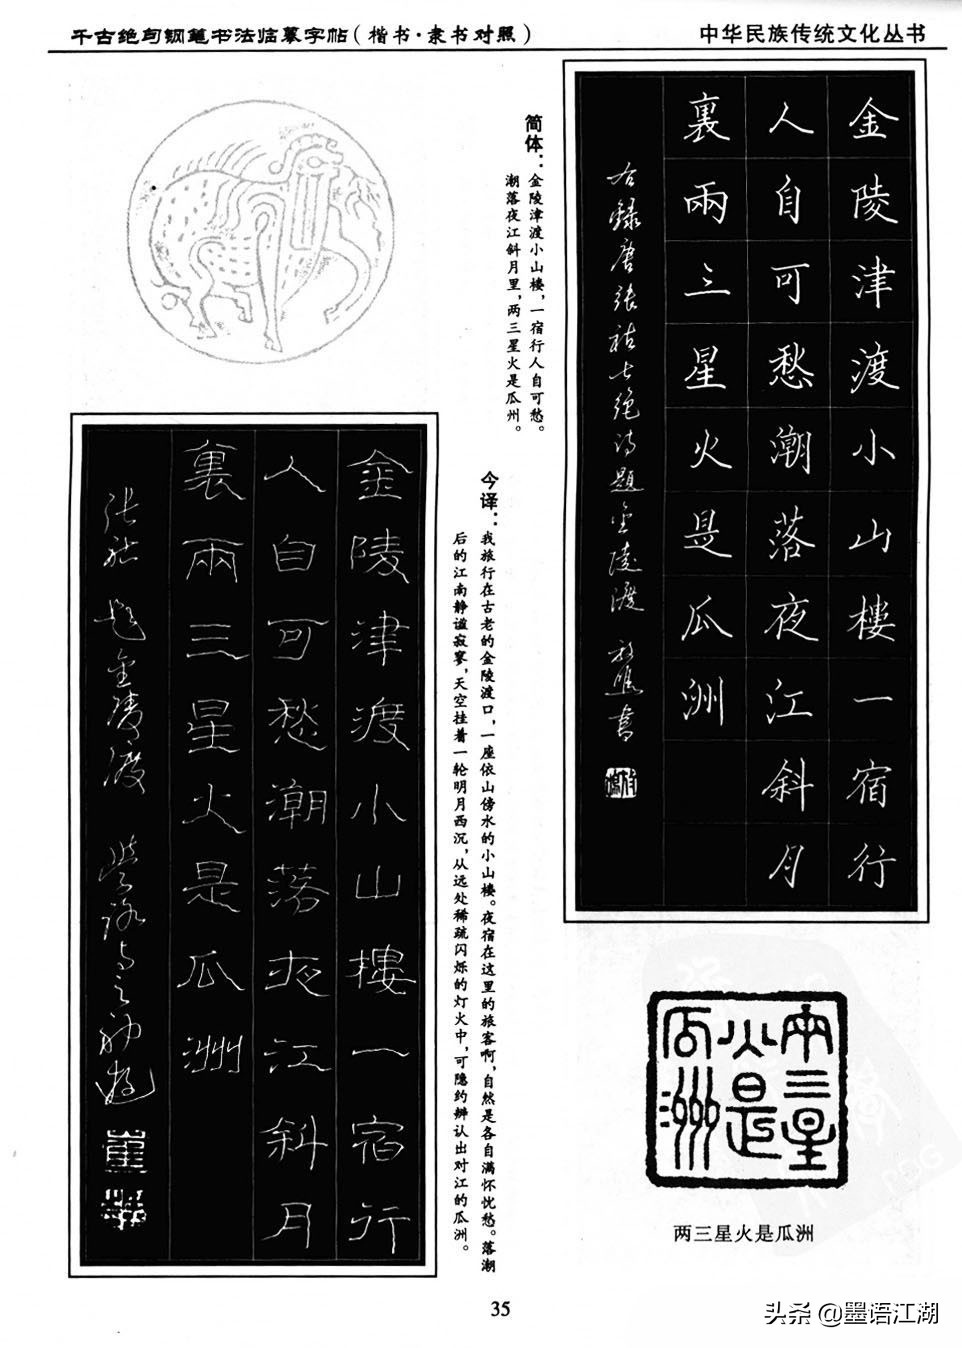 千古绝句钢笔书法临摹字帖（楷书·隶书对照）
中华民族传统文化丛书
金陵津渡小山樓一宿行
人自可愁潮落夜江斜月
裏兩三星火是瓜洲
右録唐張祜七絶詩題金陵渡
書
简体：金陵津渡小山楼，一宿行人自可愁。
潮落夜江斜月里，两三星火是瓜州。
今译：我旅行在古老的金陵渡口，一座依山傍水的小山楼。夜宿在这里的旅客啊，自然是各自满怀忧愁。落潮
后的江南静谧寂寥，天空挂着一轮明月西沉，从远处稀疏闪烁的灯火中，可隐约辨认出对江的瓜洲。
金陵津渡小山樓一宿行
人自可愁潮落夜江斜月
裏兩三星火是瓜洲
張祜 題金陵渡
兩三星
火是
瓜洲
两三星火是瓜洲
35
头条 @墨语江湖